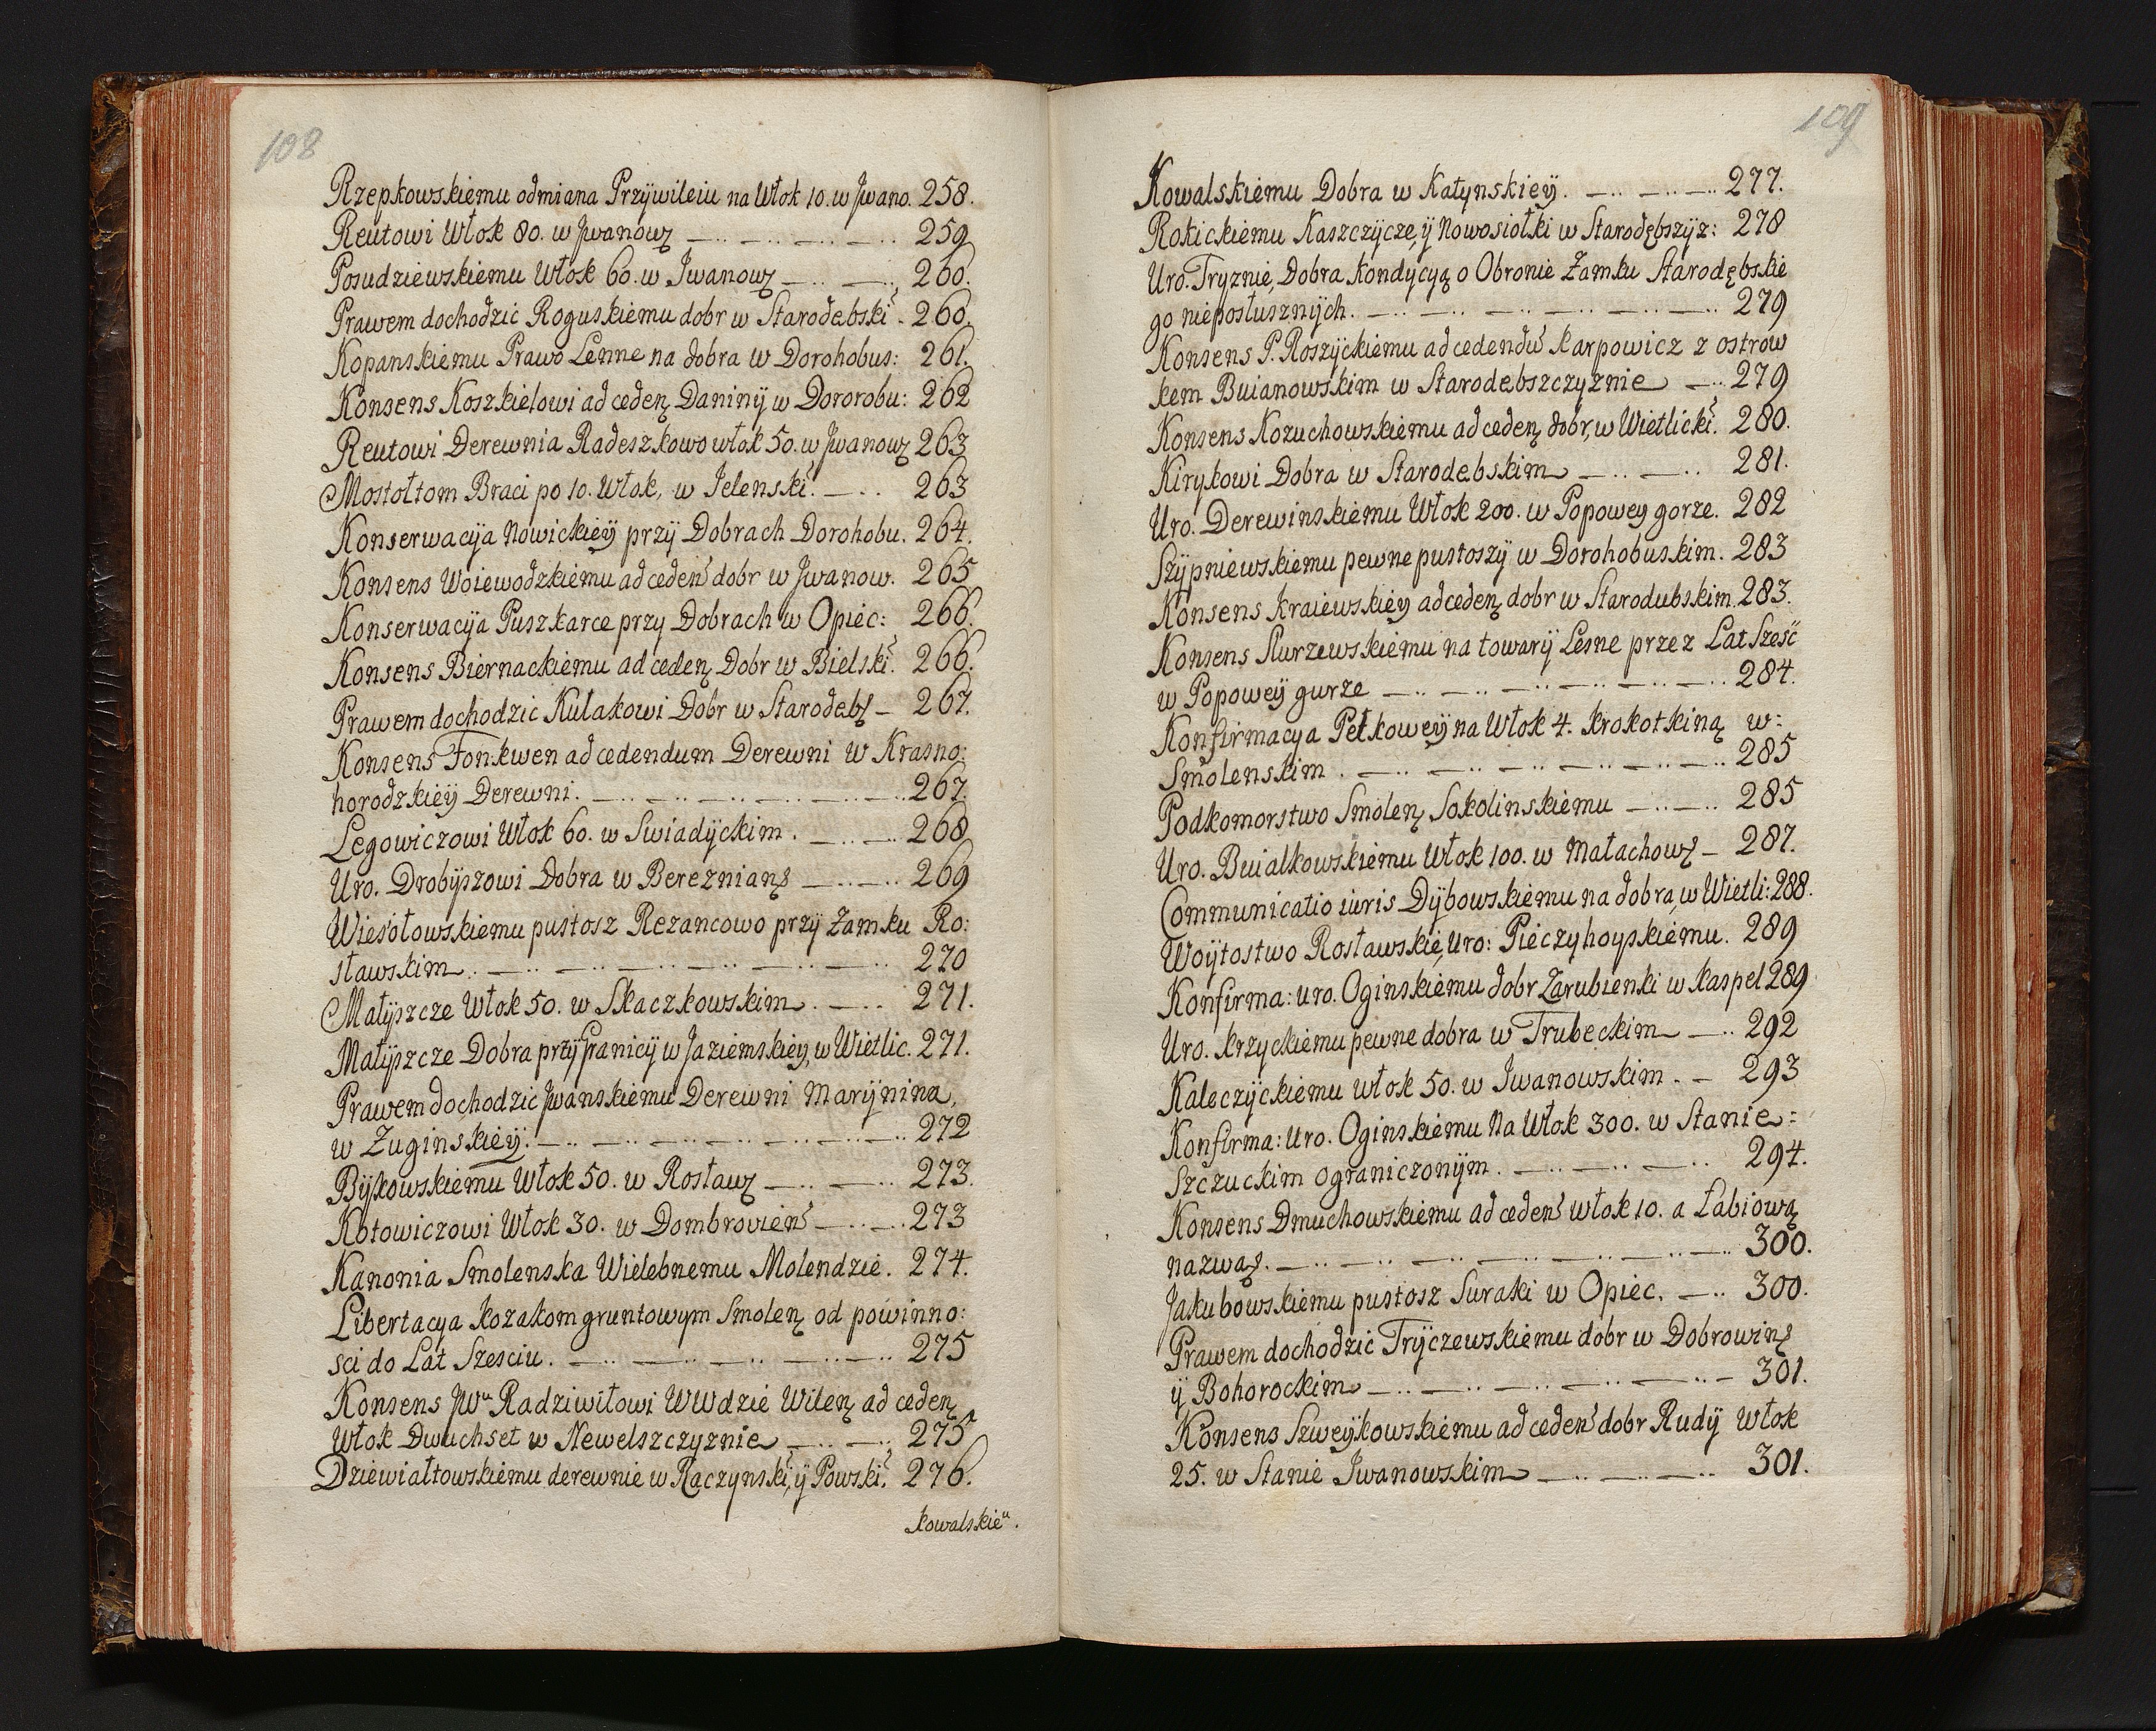 108
Rzepkowskiemu odmiana Przywileiu na Włok 10. w Jwano. 258.
Reutowi Włok 80. w Jwanow 259
Posudziewskiemu Włok 60. w Jwanow 260.
Prawem dochodzić Roguskiemu dobr w Starodębski 260.
Kopanskiemu Prawo Lenne na dobra w Dorohobus: 261.
Konsens Koszkielowi ad ceden Daniny w Dororobu: 262
Reutowi Derewnia Radeszkowo włok 50. w Jwanow 263
Mostołtom Braci po 10. Włok, w Jelenski. 263
Konserwacyia Nowickiey przy Dobrach Dorohobu. 264.
Konsens Woiewodzkiemu ad ceden dobr w Jwanow. 265
Konserwacyia Puszkarce przy Dobrach w Opiec: 266.
Konsens Biernackiemu ad ceden Dobr w Bielski. 266.
Prawem dochodzic Kulakowi Dobr w Starodęb 267.
Konsens Fonkwen ad cedendum Derewni w Krasno:
horodzkiey Derewni. 267.
Legowiczowi Włok 60. w Swiadyckim. 268
Uro. Drobyszowi Dobra w Bereznians 269
Wiesołowskiemu pustosz Rezancowo przy Zamku Ro:
sławskim. 270
Matyszcze Włok 50. w Skaczkowskim. 271.
Matyszcze Dobra przy Granicy w Jaziemskiey, w Wietlic. 271.
Prawem dochodzic Jwanskiemu Derewni Marynina,
w Zuginskiey. 272
Bykowskiemu Włok 50. w Rosław 273.
Kotowiczowi Włok 30. w Dombrovien 273
Kanonia Smolenska Wielebnemu Molendzie. 274.
Libertacya Kozakom gruntowym Smolen od powinno:
sci do Lat Szesciu. 275
Konsens JWu Radziwiłowi WWdzie Wilen ad ceden
Włok Dwuchset w Newelszczyznie 275
Dziewiałtowskiemu derewnie w Raczynski, y Powski. 276.
Kowalskieu.
109
Kowalskiemu Dobra w Katynskiey. 277.
Rokickiemu Kaszczycze, y Nowosiołki w Starodębszyz: 278
Uro. Tryznie, Dobra Kondycyą o Obronie Zamku Starodębskie
go nieposłusznych. 279
Konsens P. Roszyckiemu ad cedendu Karpowicz z ostrow
kem Buianowskim w Starodebszczyznie 279
Konsens Kozuchowskiemu ad ceden dobr, w Wietlicki. 280.
Kirykowi Dobra w Starodębskim 281.
Uro. Derewinskiemu Włok 200. w Popowey gorze. 282
Szypniewskiemu pewne pustoszy w Dorohobuskim. 283
Konsens Kraiewskiey ad ceden dobr w Starodubskim. 283.
Konsens Skurzewskiemu na towary Lesne przez Lat Sześć
w Popowey gurze 284.
Konfirmacya Petkowey na Włok 4. Krokotkiną w:
Smolenskim. 285
Podkomorstwo Smolen Sokolinskiemu 285
Uro. Bwialkowskiemu Włok 100. w Małachow 287.
Communicatio iuris Dybowskiemu na dobra, w Wietli: 288.
Woytostwo Rosławskie, Uro: Pieczyhoyskiemu. 289
Konfirma: uro. Oginskiemu dobr Zarubienki w Kaspel 289
Uro. Krzyckiemu pewne dobra w Trubeckim 292
Kaleczyckiemu Włok 50. w Jwanowskim. 293
Konfirma: Uro. Oginskiemu Na Włok 300. w Stanie:
Szczuckim ograniczonym. 294.
Konsens Dmuchowskiemu ad ceden włok 10. a Łabiową
nazwą. 300.
Jakubowskiemu pustosz Suraki w Opiec. 300.
Prawem dochodzic Tryczewskiemu dobr w Dobrowin
y Bohorockim 301.
Konsens Szweykowskiemu ad ceden dobr Rudy Włok
25. w Stanie Jwanowskim 301.